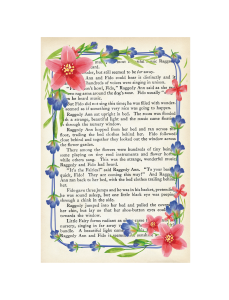 but still seemed to be far away.
Ann and Fido could hear it distinctly and it
hundreds of voices were singing in unison.
"Don't bow-wow, Fido," Raggedy Ann said as she
arms around the dog's nose. Fido usually
to be heard music,
But Fido did not sing this time; he was filled with wonder
seemed as if something very nice was going to happen.
Raggedy Ann sat upright in bed. The room was flooded
a strange, beautiful light and the music came floating
through the nursery window.
Raggedy Ann hopped from her bed and ran across the
floor, trailing the bed clothes behind her. Fido followed
close behind and together they looked out the window across
the flower garden.
There among the flowers were hundreds of tiny beings,
some playing on tiny reed instruments and flower horns,
while others sang. This was the strange, wonderful music
Raggedy and Fido had heard.
"It's the Fairies!" said Raggedy Ann. "To your basket
quick, Fido! They are coming this way!" And Raggedy
Ann ran back to her bed, with the bed clothes trailing behind
her.
Fido gave three jumps and he was in his basket, pretending
he was sound asleep, but one little black eye was peeping
through a chink in the side.
Raggedy jumped into her bed and pulled the covers
her chin, but lay so that her shoe-button eyes could
towards the window.
Little Fairy forms radiant as
nursery, singing in far
A beautiful light
Raggedy Ann